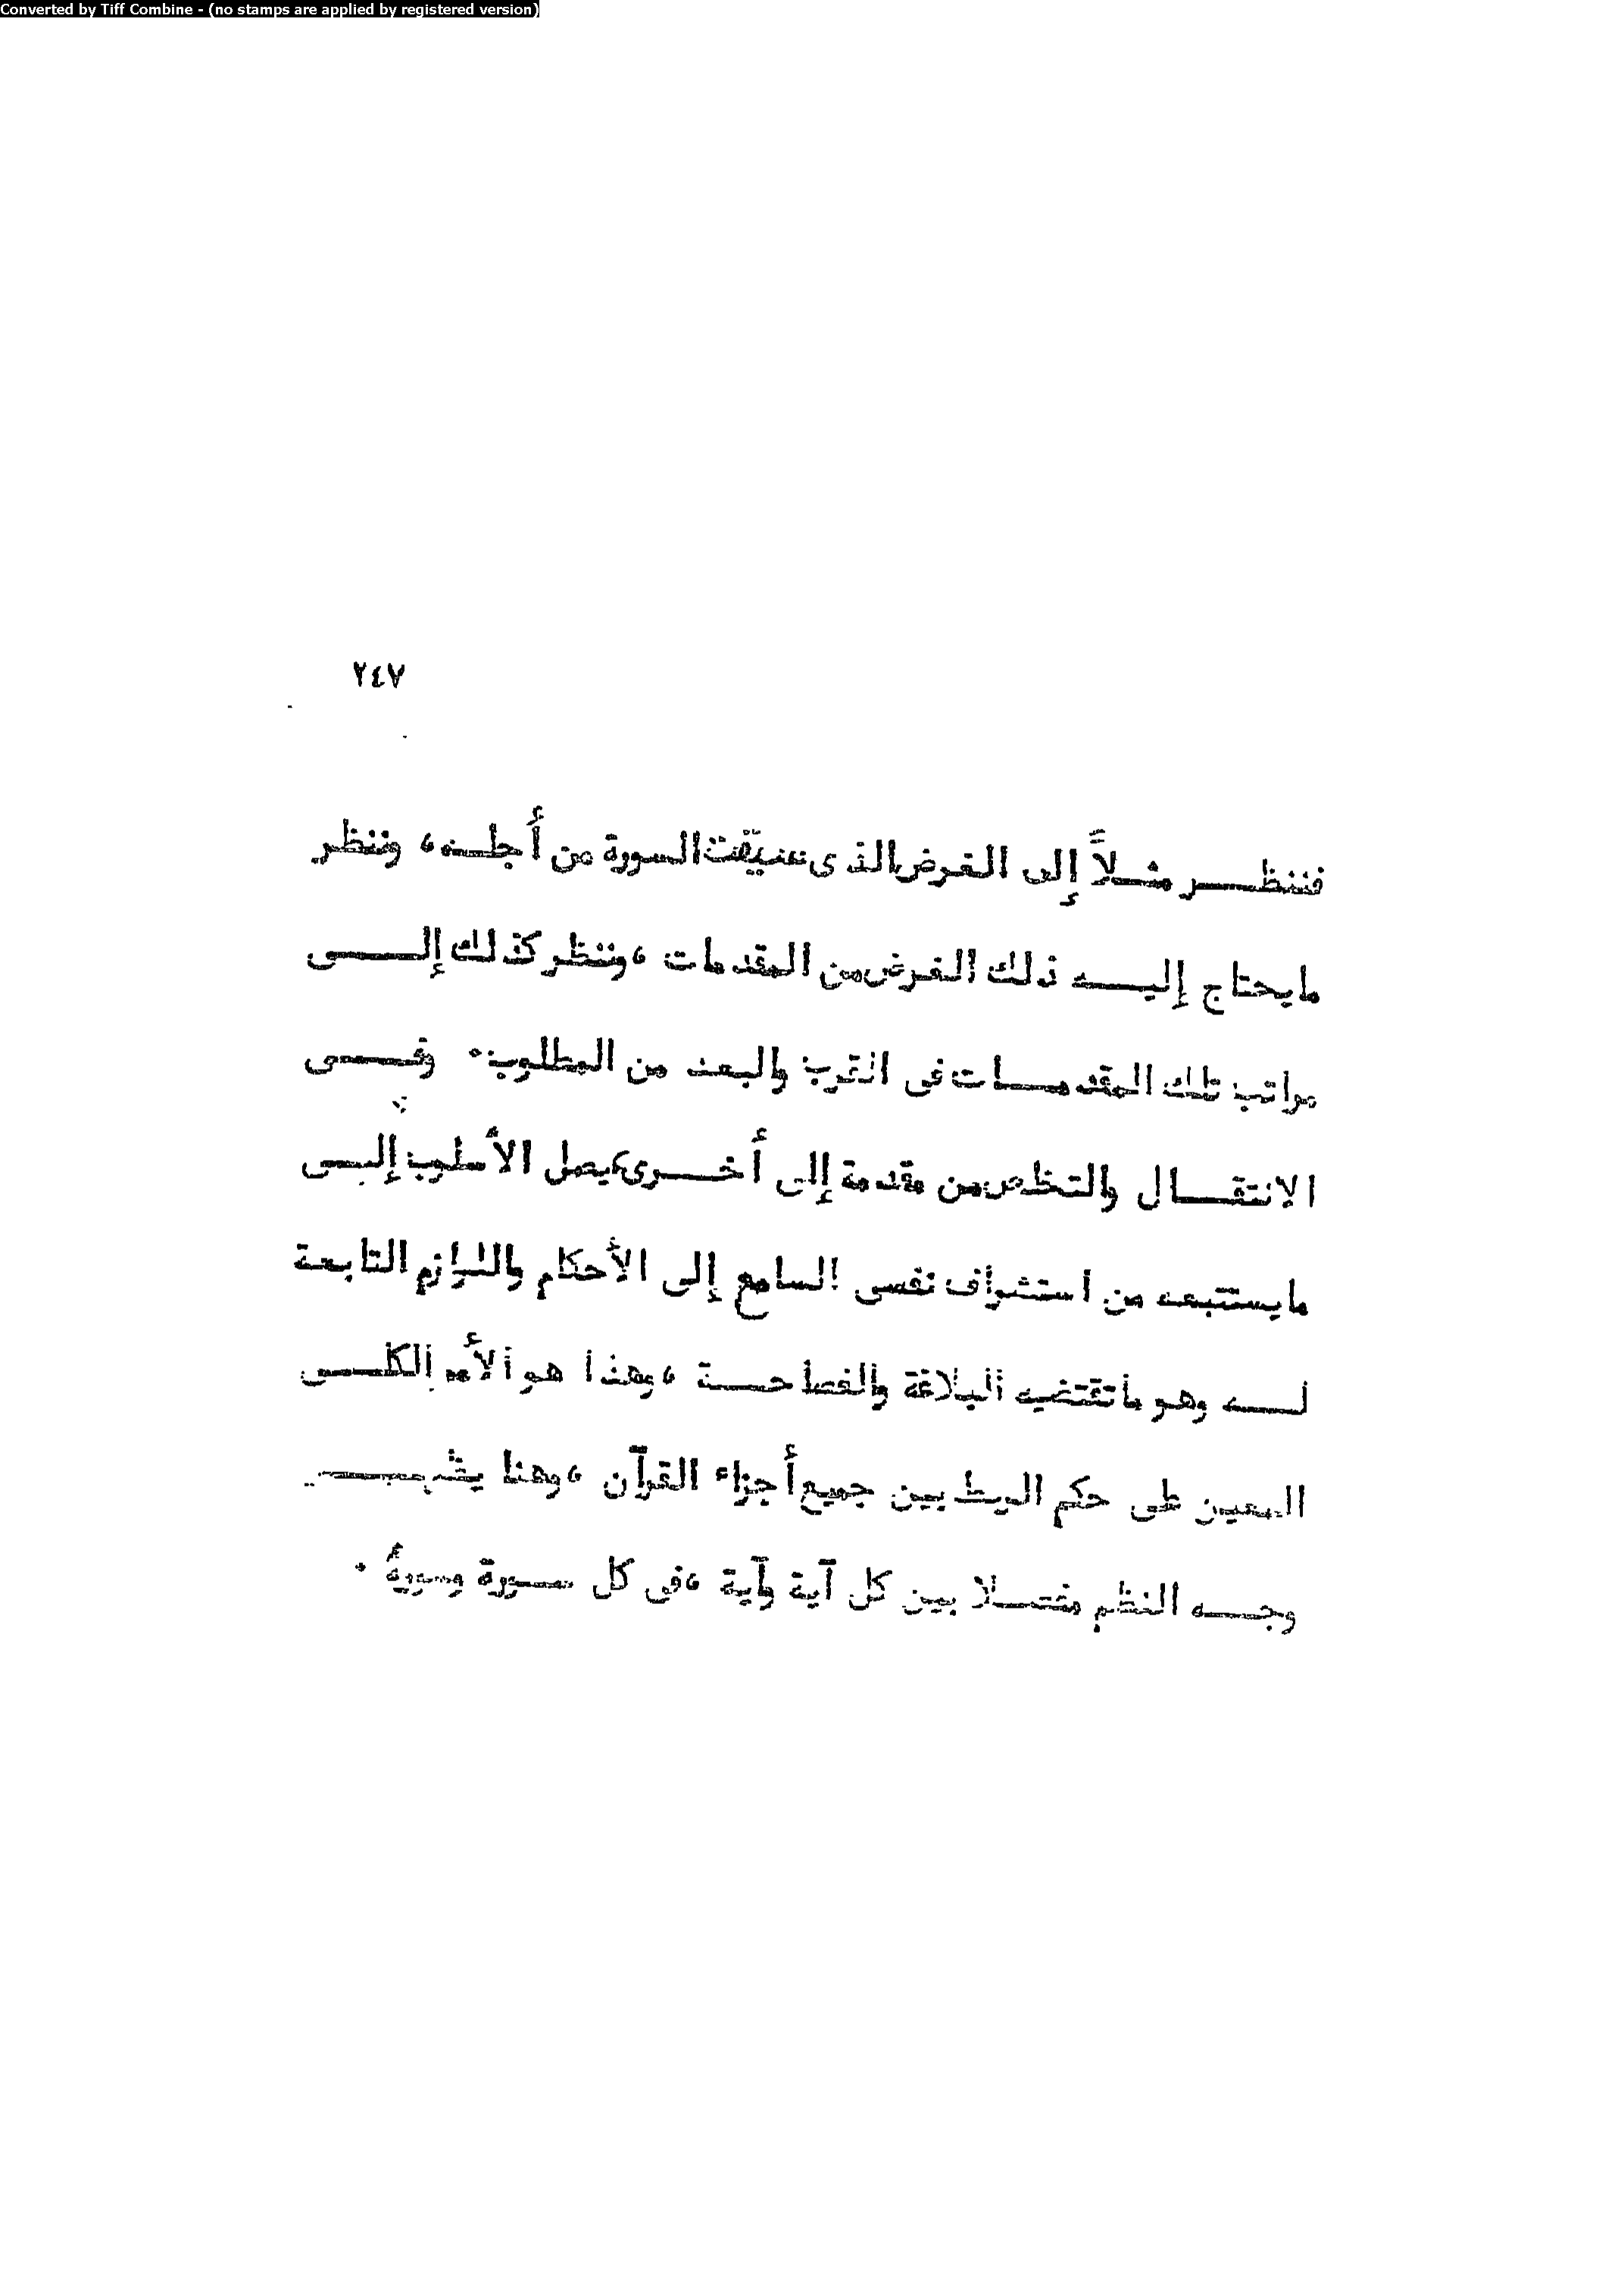 Converted by Tiff Combine - (no stamps are applied by registered version)
٢٤٧
فننظر مثلاً إلى الغرض الذى سيقت السورة من أجله، وننظر
مايحتاج إليه ذلك الغرض من المقدمات ، وننظر كذلك إلى
مراتب تلك المقدمات فى القرب والبعد من المطلوب. وفى
الانتقال والتخلص من مقدمة إلى أخرى، يصل الأسلوب إلى
مايستتبعه من استشراف نفس السامع إلى الأحكام واللوازم التابعة
له وهو ماتقتضيه البلاغة والفصاحة ، وهذا هو الأمر الكلى
المعين على حكم الربط بين جميع أجزاء القرآن ، وهنا
وجه النظم مفصلا بين كل آية وآية ، فى كل سورة وسورة .